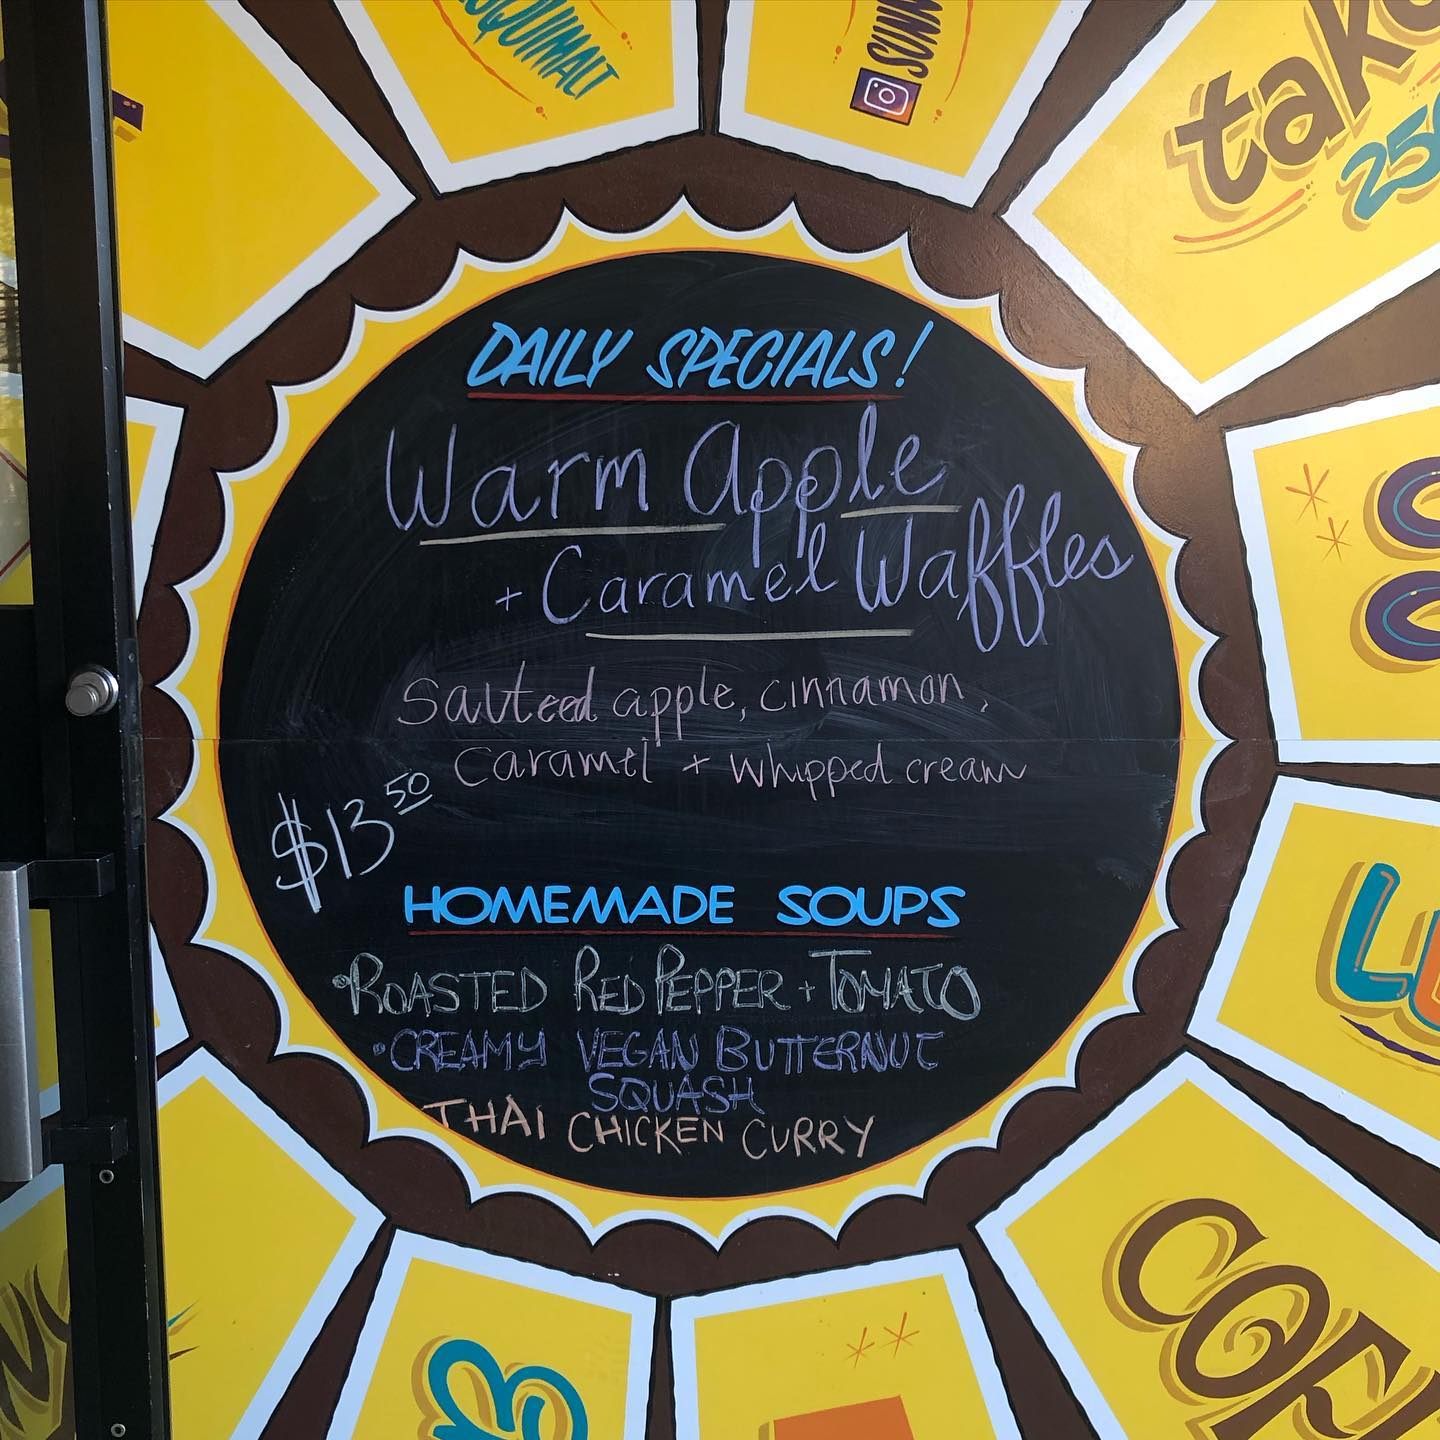 ESQUIMALT
SUNN
tak
250
DAILY SPECIALS!
Warm Apple
+ Caramel Waffles
Sauteed apple, cinnamon,
caramel + whipped cream
$13.50
HOMEMADE SOUPS
• ROASTED RED PEPPER + TOMATO
• CREAMY VEGAN BUTTERNUT
SQUASH
THAI CHICKEN CURRY
LU
COF